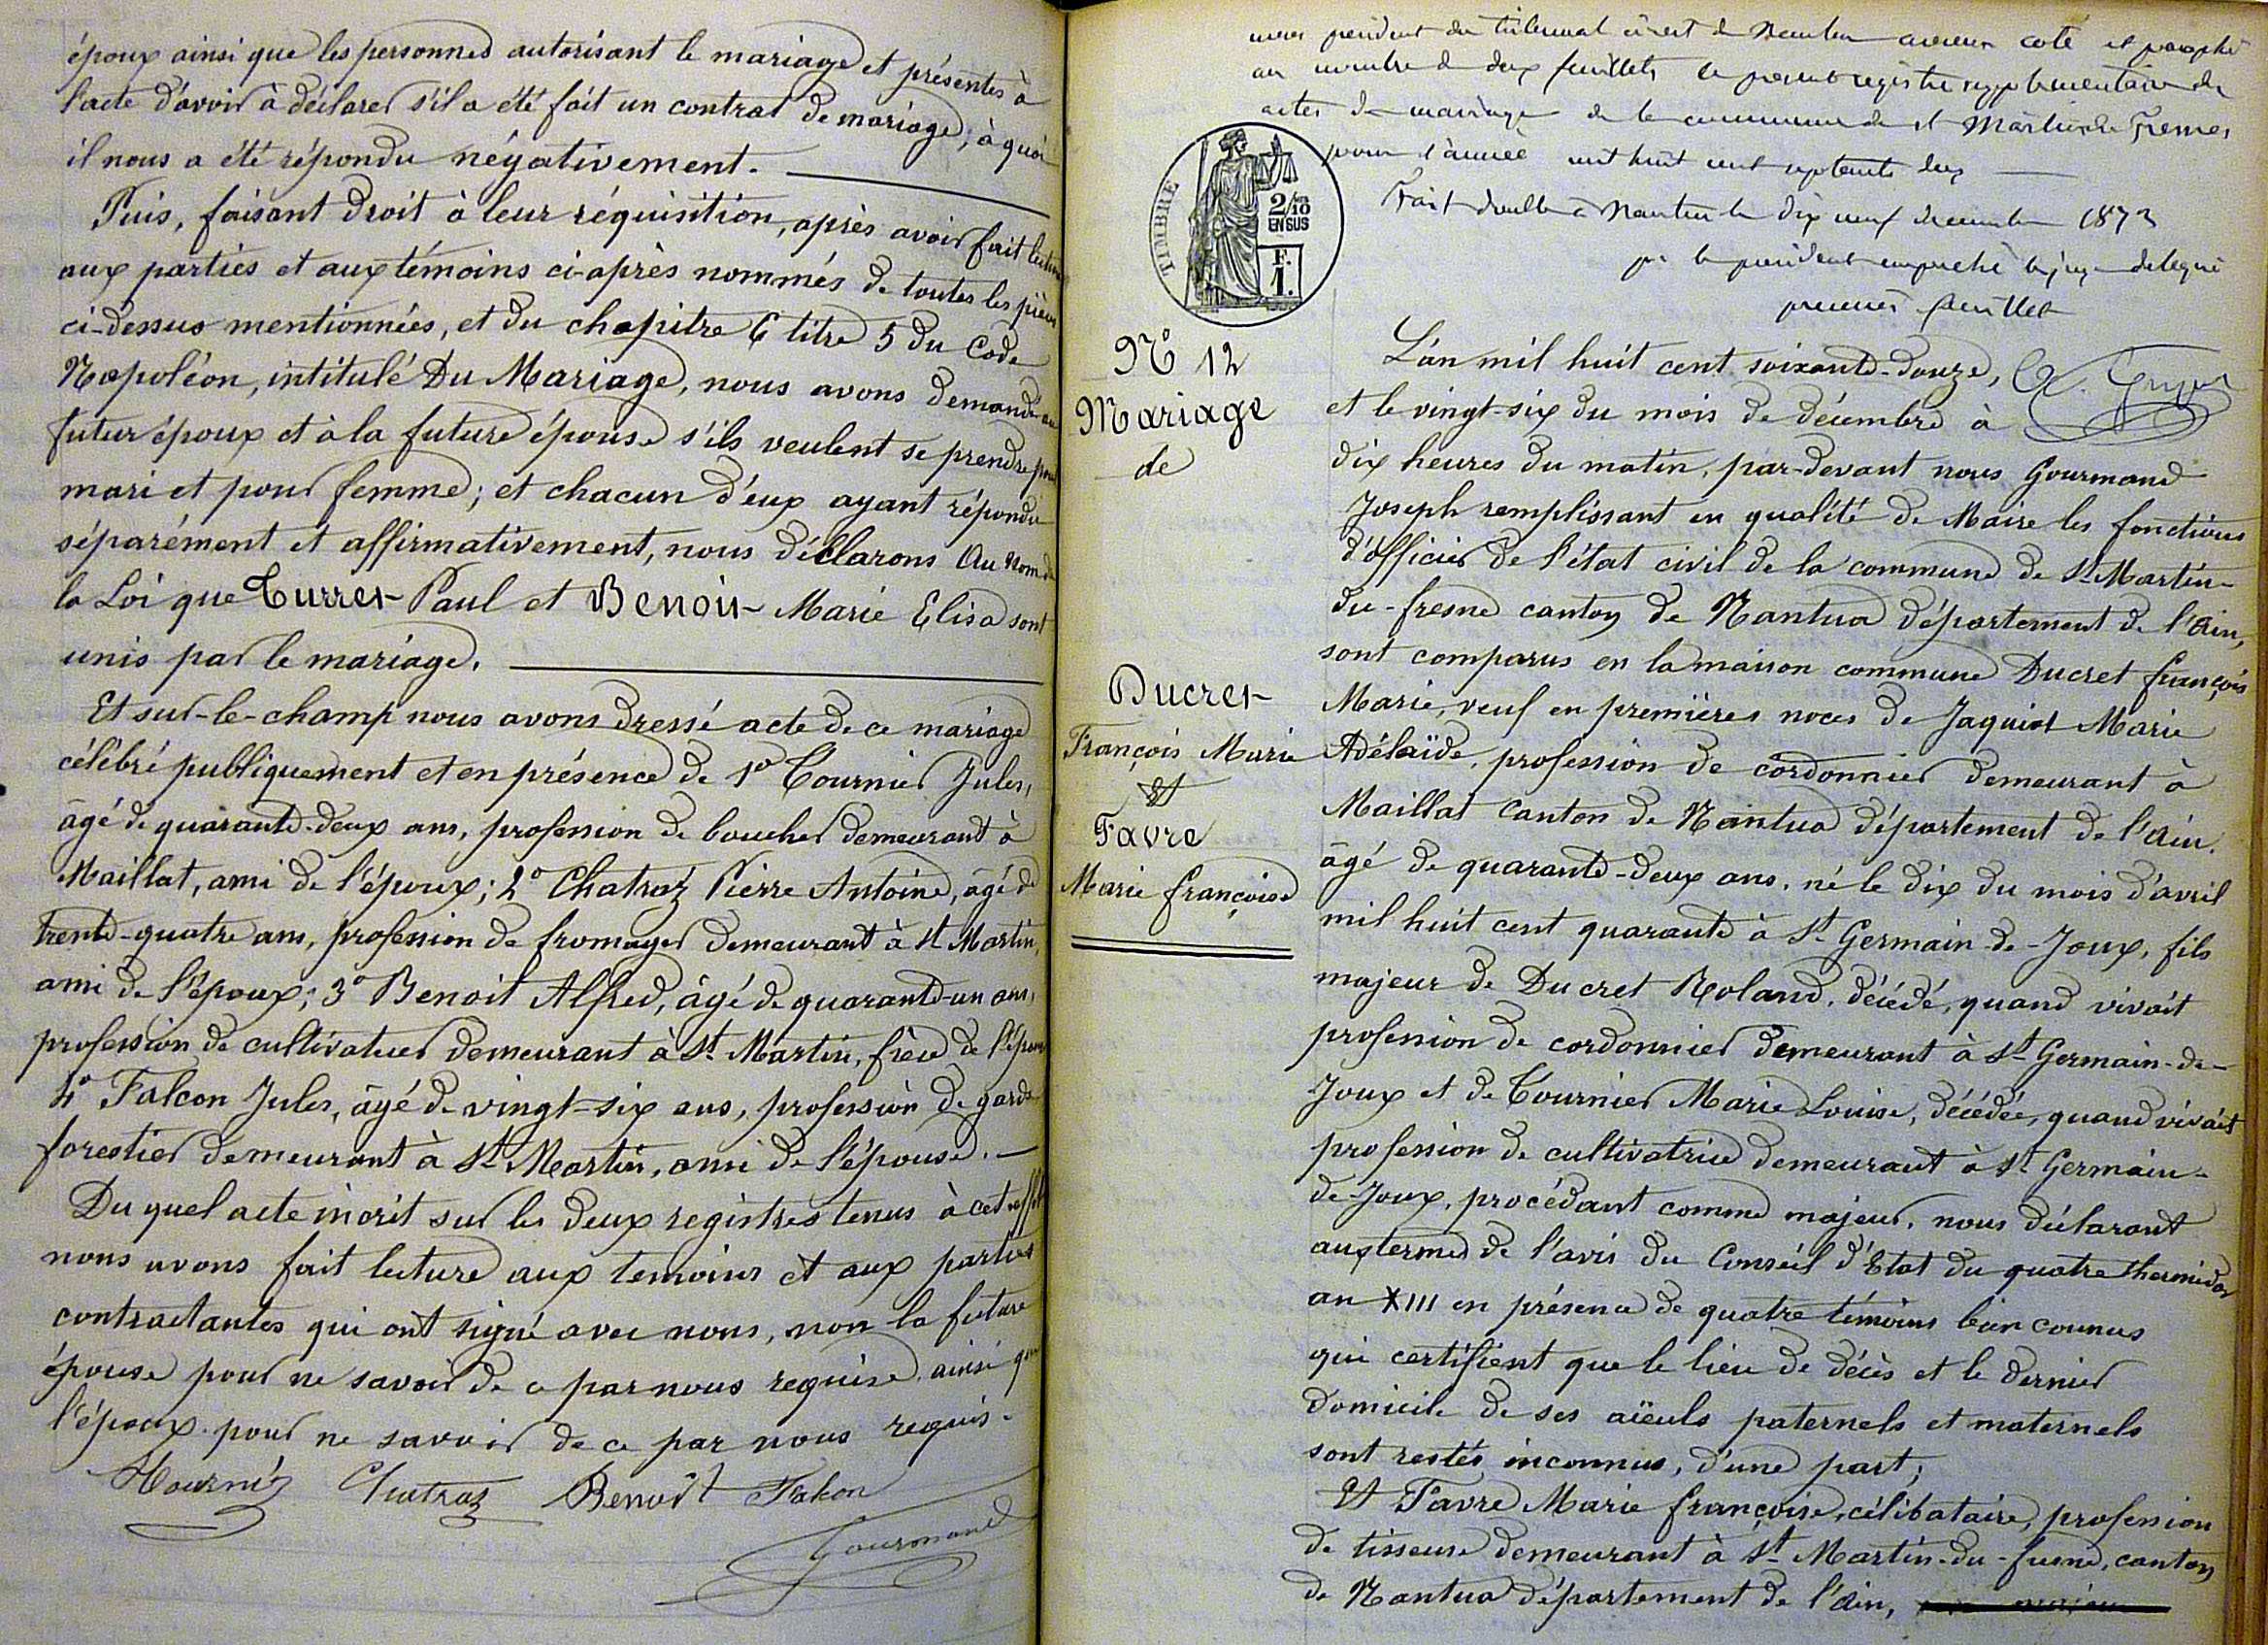 époux ainsi que les personnes autorisant le mariage et présentes à
l'acte d'avoir à déclarer s'il a été fait un contrat de mariage; à quoi
il nous a été répondu négativement.
Puis, faisant droit à leur réquisition, après avoir fait lecture
aux parties et aux témoins ci-après nommés de toutes les pièces
ci-dessus mentionnées, et du chapitre 6 titre 5 du Code
Napoléon, intitulé Du Mariage, nous avons demandé au
futur époux et à la future épouse s'ils veulent se prendre pour
mari et pour femme; et chacun d'eux ayant répondu
séparément et affirmativement, nous déclarons Au nom de
la Loi que Turret Paul et Benoit Marie Elisa sont
unis par le mariage.
Et sur-le-champ nous avons dressé acte de ce mariage
célébré publiquement et en présence de 1º Tournier Jules,
âgé de quarante-deux ans, profession de boucher demeurant à
Maillat, ami de l'époux; 2º Chatraz Pierre Antoine, âgé de
trente-quatre ans, profession de fromager demeurant à St Martin,
ami de l'époux; 3º Benoit Alfred, âgé de quarante-un ans,
profession de cultivateur demeurant à St Martin, frère de l'épouse
4º Falcon Jules, âgé de vingt-six ans, profession de garde
forestier demeurant à St Martin, ami de l'épouse.
Du quel acte inscrit sur les deux registres tenus à cet effet
nous avons fait lecture aux temoins et aux parties
contractantes qui ont signé avec nous, non la future
épouse pour ne savoir de ce par nous requise ainsi que
l'époux pour ne savoir de ce par nous requis.
Tournier Chatraz Benoit Falcon
Gourmand
nous président du tribunal civil de Nantua avons coté et paraphé
au nombre de deux feuillets le présent registre supplémentaire des
actes de mariage de la commune de St Martin du Fresne
pour l'année mil huit cent septante deux
Fait double à Nantua le dix neuf décembre 1872
pr le président empêché le juge délégué
premier feuillet
TIMBRE
2/10
EN SUS
F.
1.
Nº 12
Mariage
de
Ducret
François Marie
Et
Favre
Marie françoise
L'an mil huit cent soixante-douze,
et le vingt-six du mois de décembre à
dix heures du matin, par-devant nous Gourmand
Joseph remplissant en qualité de Maire les fonctions
d'officier de l'état civil de la commune de St Martin-
du-fresne canton de Nantua département de l'Ain,
sont comparus en la maison commune Ducret françois
Marie, veuf en premières noces de Jaquiot Marie
Adélaïde, profession de cordonnier demeurant à
Maillat Canton de Nantua département de l'Ain.
âgé de quarante-deux ans, né le dix du mois d'avril
mil huit cent quarante à St Germain-de-Joux, fils
majeur de Ducret Roland, décédé, quand vivait
profession de cordonnier demeurant à St Germain-de-
Joux et de Tournier Marie Louise, décédée, quand vivait
profession de cultivatrice demeurant à St Germain-
de-Joux, procédant comme majeur, nous déclarant
aux termes de l'avis du Conseil d'Etat du quatre thermidor
an XIII en présence de quatre témoins bien connus
qui certifient que le lieu de décès et le dernier
domicile de ses aïeuls paternels et maternels
sont restés inconnus, d'une part;
Et Favre Marie françoise, célibataire, profession
de tisseuse demeurant à St Martin-du-fresne, canton
de Nantua département de l'Ain,